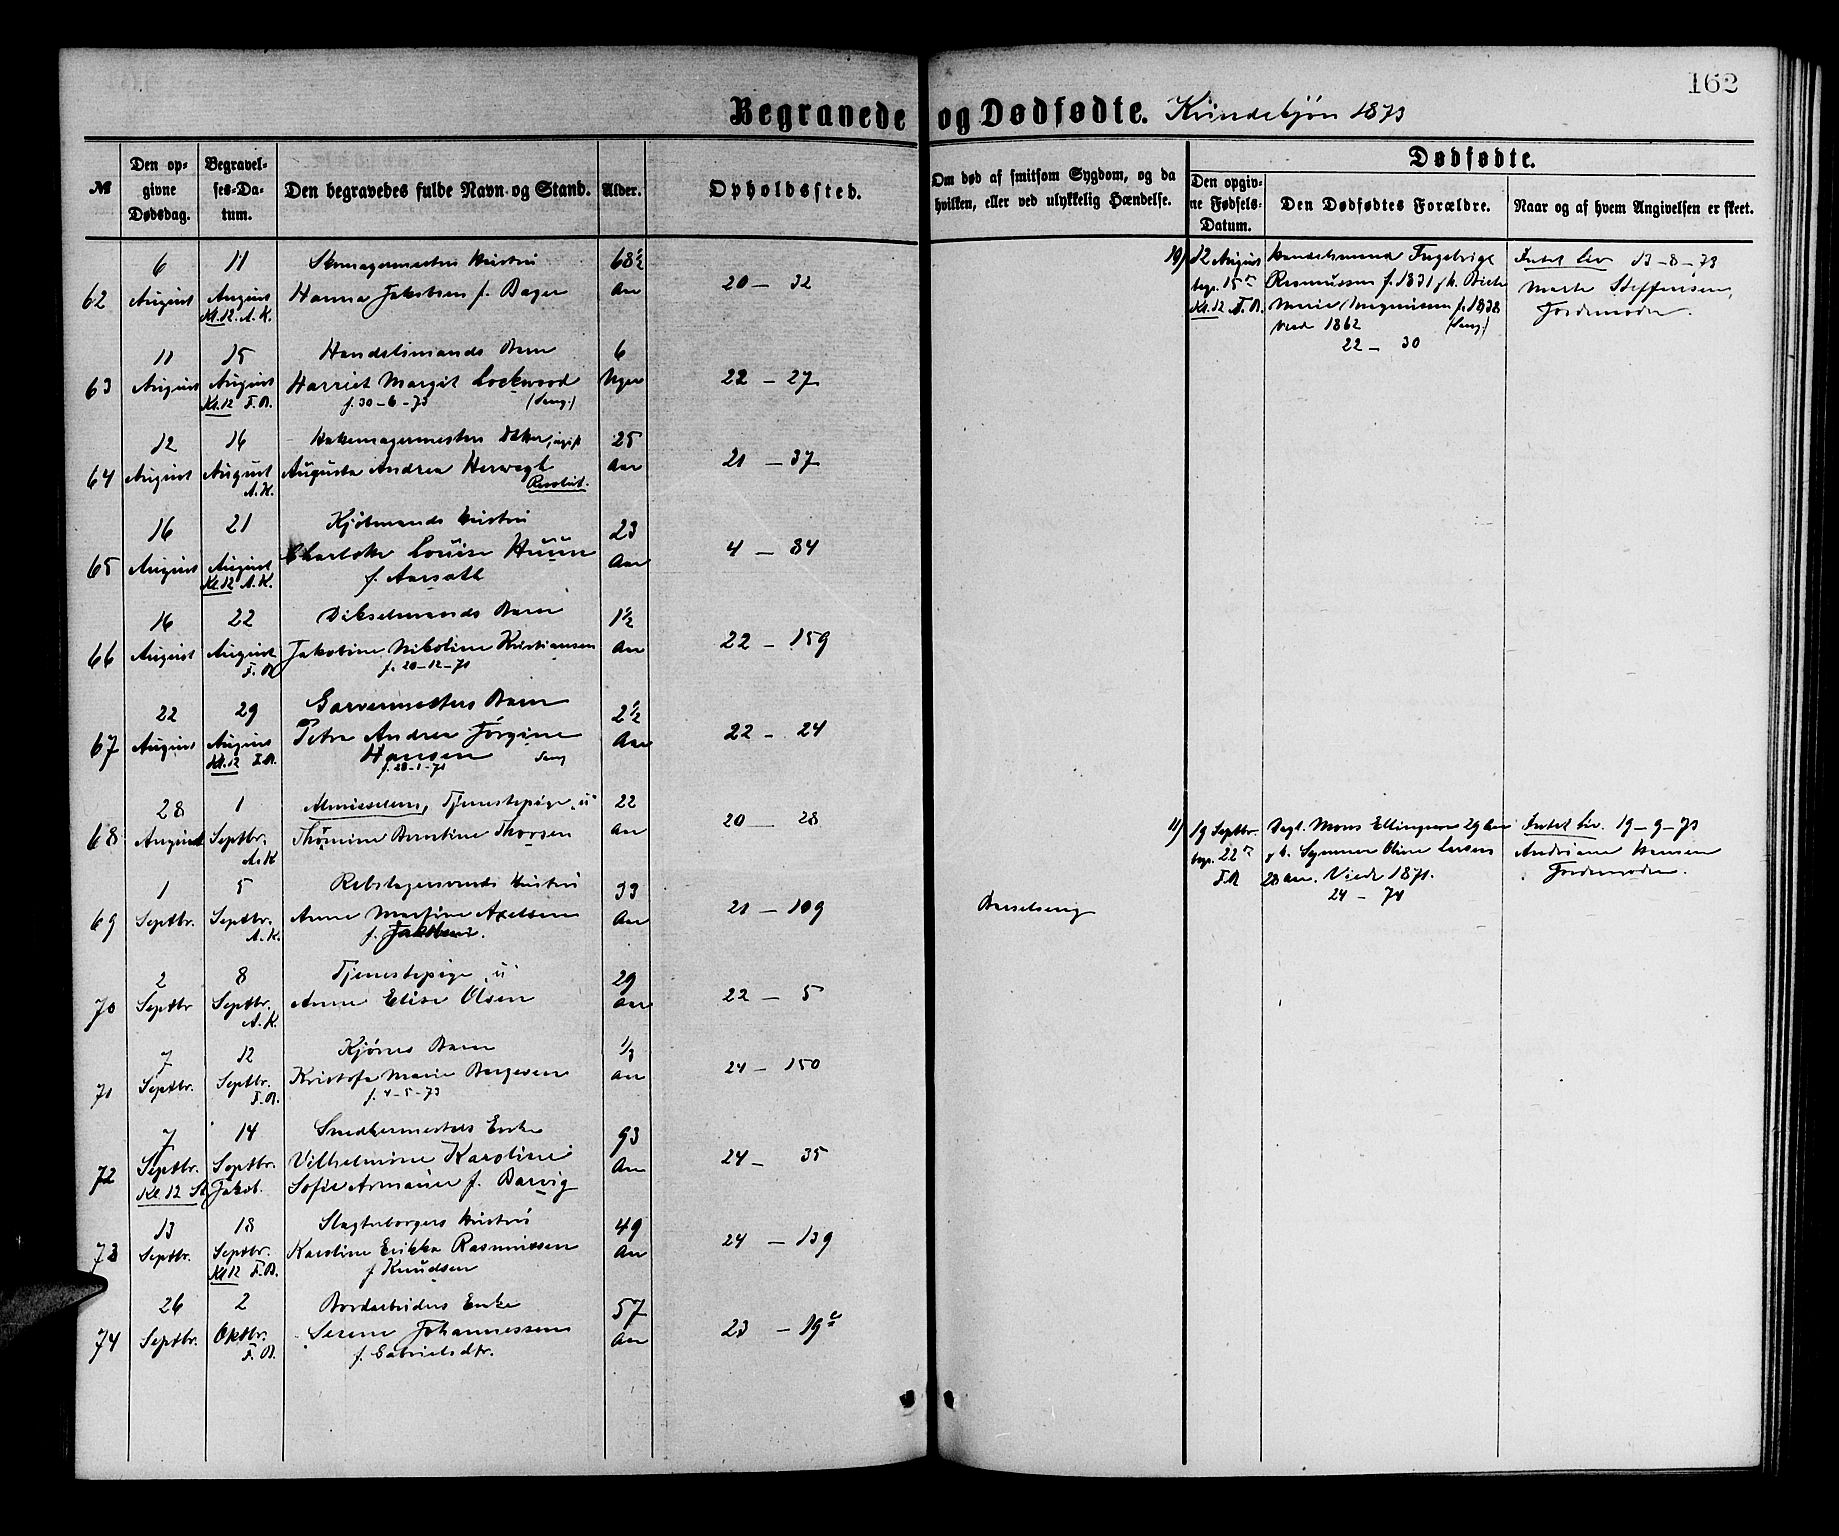 162
Begravede og Dødfødte. Kvindekjøn 1873
№
Den opgivne Dødsdag.
Begravelses-Datum.
Den begravedes fulde Navn og Stand.
Alder.
Opholdssted.
Om død af smitsom Sygdom, og da hvilken, eller ved ulykkelig Hændelse.
Dødfødte.
Den opgivne Fødsels-Datum.
Den Dødfødtes Forældre.
Naar og af hvem Angivelsen er skeet.
62 6 August 11 August Kl. 12 A. K.
Skomagermesters Hustru
Hanna Jakobsen f. Bager
68½ Aar 20 — 32
63 11 August 15 August Kl. 12 F. R.
Handelsmands Barn
Harriet Margit Lockwood
f. 30-6-73
6 Uger 22 — 27
64 12 August 16 August A. K.
ugift
Augusta Andrea Herwegh
25 Aar 21 — 37
65 16 August 21 August Kl. 12 A. K.
Kjøbmands Hustru
Charlotte Louise Huun
f. Aarsæth
23 Aar 4 — 34
66 16 August 22 August F. R.
Barn
Jakobine Nikoline Kristiansen
f. 20-12-71
1½ Aar 22 — 159
67 22 August 29 August Kl. 12 F. R.
Garvermesters Barn
Petra Andrea Jørgine
Hansen
f. 28-1-71
2½ Aar 22 — 24
68 28 August 1 Septbr. A. K.
Tjenestepige, u
Thomine Berntine Thorsen
22 Aar 20 — 28
69 1 Septbr. 5 Septbr. A. K.
Rebslagersvends Hustru
Anne Martine Axelsen
f. Jakobsen.
33 Aar 21 — 109
Barselseng
70 2 Septbr 8 Septbr. A. K.
Tjenestepige, u
Anne Elise Olsen
29 Aar 22 — 5
71 7 Septbr. 12 Septbr. F. R.
Kjøres Barn
Kristofa Marie Børgesen
f. 4-5-73
1/3 Aar 24 — 150
72 7 Septbr. 14 Septbr. Kl. 12 St. Jakob.
Snedkermesters Enke
Vilhelmine Karoline
Sofie Armauer f. Barvig
93 Aar 24 — 35
73 13 Septbr. 18 Septbr. Kl 12 F. R.
Slagterborgers Hustru
Karoline Erikka Rasmussen
f Knudsen
49 Aar 24 — 139
74 26 Septbr. 2 Oktbr. F. R.
Bordarbeiders Enke
Serine Johannessen
f. Gabrielsdtr.
57 Aar 23 — 19
10) 12 August begr. 15de Kl. 12 F. R.
Handelsmand Ingebrigt
Rasmussen f. 1831 og h.
Marie Magnussen f. 1838
Viede 1862
22 — 30
Intet Liv 13-8-73
Marte Steffensen,
Jordemoder.
11) 19 Septbr. begr. 22de F. R
Mons Ellingsen 29 Aar
og h. Oline Larsen
28 Aar. Viede 1871.
24 — 74
Intet Liv. 19-9-73
Andriane Hansen
Jordemoder.